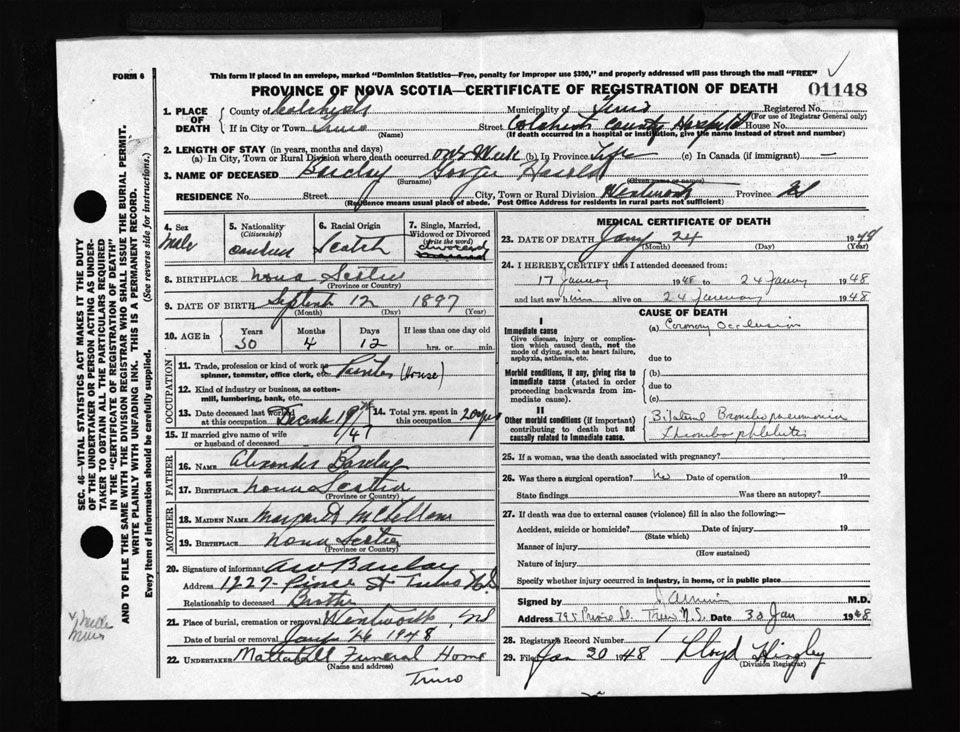 FORM 6
This form if placed in an envelope, marked "Dominion Statistics—Free, penalty for improper use $300," and properly addressed will pass through the mail "FREE"
PROVINCE OF NOVA SCOTIA—CERTIFICATE OF REGISTRATION OF DEATH
01148
1. PLACE OF DEATH
County of Colchester Municipality of Truro Registered No.
(For use of Registrar General only)
If in City or Town Truro (Name) Street Colchester County Hospital House No.
(If death occurred in a hospital or institution, give the name instead of street and number)
2. LENGTH OF STAY (in years, months and days)
(a) In City, Town or Rural Division where death occurred one week (b) In Province Life (c) In Canada (if immigrant) —
3. NAME OF DECEASED Barclay George Harold
(Surname) (Given name or names)
RESIDENCE No. Street City, Town or Rural Division Wentworth Province NS
(Residence means usual place of abode. Post Office Address for residents in rural parts not sufficient)
4. Sex Male
5. Nationality (Citizenship)
6. Racial Origin Scotch
7. Single, Married, Widowed or Divorced (write the word) divorced
8. BIRTHPLACE Nova Scotia
(Province or Country)
9. DATE OF BIRTH Septemb 12 1897
(Month) (Day) (Year)
10. AGE in Years 50 Months 4 Days 12 If less than one day hrs. or min.
OCCUPATION
11. Trade, profession or kind of work as spinner, teamster, office clerk, etc. Painter (House)
12. Kind of industry or business, as cotton-mill, lumbering, bank, etc.
13. Date deceased last worked at this occupation 1947
14. Total yrs. spent in this occupation 20 yrs
15. If married give name of wife or husband of deceased
FATHER
16. NAME Alexander Barclay
17. BIRTHPLACE Nova Scotia
(Province or Country)
MOTHER
18. MAIDEN NAME Margaret McClellan
19. BIRTHPLACE Nova Scotia
(Province or Country)
20. Signature of informant Barclay
Address St Truro N.S.
Relationship to deceased Brother
21. Place of burial, cremation or removal Wentworth, NS
Date of burial or removal Jany 26 1948
22. UNDERTAKER Mattatall Funeral Home
(Name and address)
Truro
MEDICAL CERTIFICATE OF DEATH
23. DATE OF DEATH Jany 24 1948
(Month) (Day) (Year)
24. I HEREBY CERTIFY that I attended deceased from:
17 January 1948 to 24 January 1948
and last saw him alive on 24 January 1948
CAUSE OF DEATH
I
Immediate cause
Give disease, injury or complication which caused death, not the mode of dying, such as heart failure, asphyxia, asthenia, etc.
(a) Coronary Occlusion
due to
Morbid conditions, if any, giving rise to immediate cause (stated in order proceeding backwards from immediate cause)
(b)
due to
(c)
II
Other morbid conditions (if important) contributing to death but not causally related to immediate cause.
Bilateral Bronchopneumonia
Thrombophlebitis
25. If a woman, was the death associated with pregnancy?
26. Was there a surgical operation? No Date of operation 19
State findings Was there an autopsy?
27. If death was due to external causes (violence) fill in also the following:—
Accident, suicide or homicide? Date of injury 19
(State which)
Manner of injury
(How sustained)
Nature of injury
Specify whether injury occurred in industry, in home, or in public place
Signed by M.D.
Address 795 Prince St. Truro N.S. Date 30 Jan 1948
28. Registrar's Record Number
29. Filed Jan 30 1948 Lloyd Hingley
(Division Registrar)
SEC. 46—VITAL STATISTICS ACT MAKES IT THE DUTY OF THE UNDERTAKER OR PERSON ACTING AS UNDERTAKER TO OBTAIN ALL THE PARTICULARS REQUIRED IN THE "CERTIFICATE OF REGISTRATION OF DEATH"
AND TO FILE THE SAME WITH THE DIVISION REGISTRAR WHO SHALL ISSUE THE BURIAL PERMIT.
WRITE PLAINLY WITH UNFADING INK. THIS IS A PERMANENT RECORD.
Every item of information should be carefully supplied. (See reverse side for instructions.)